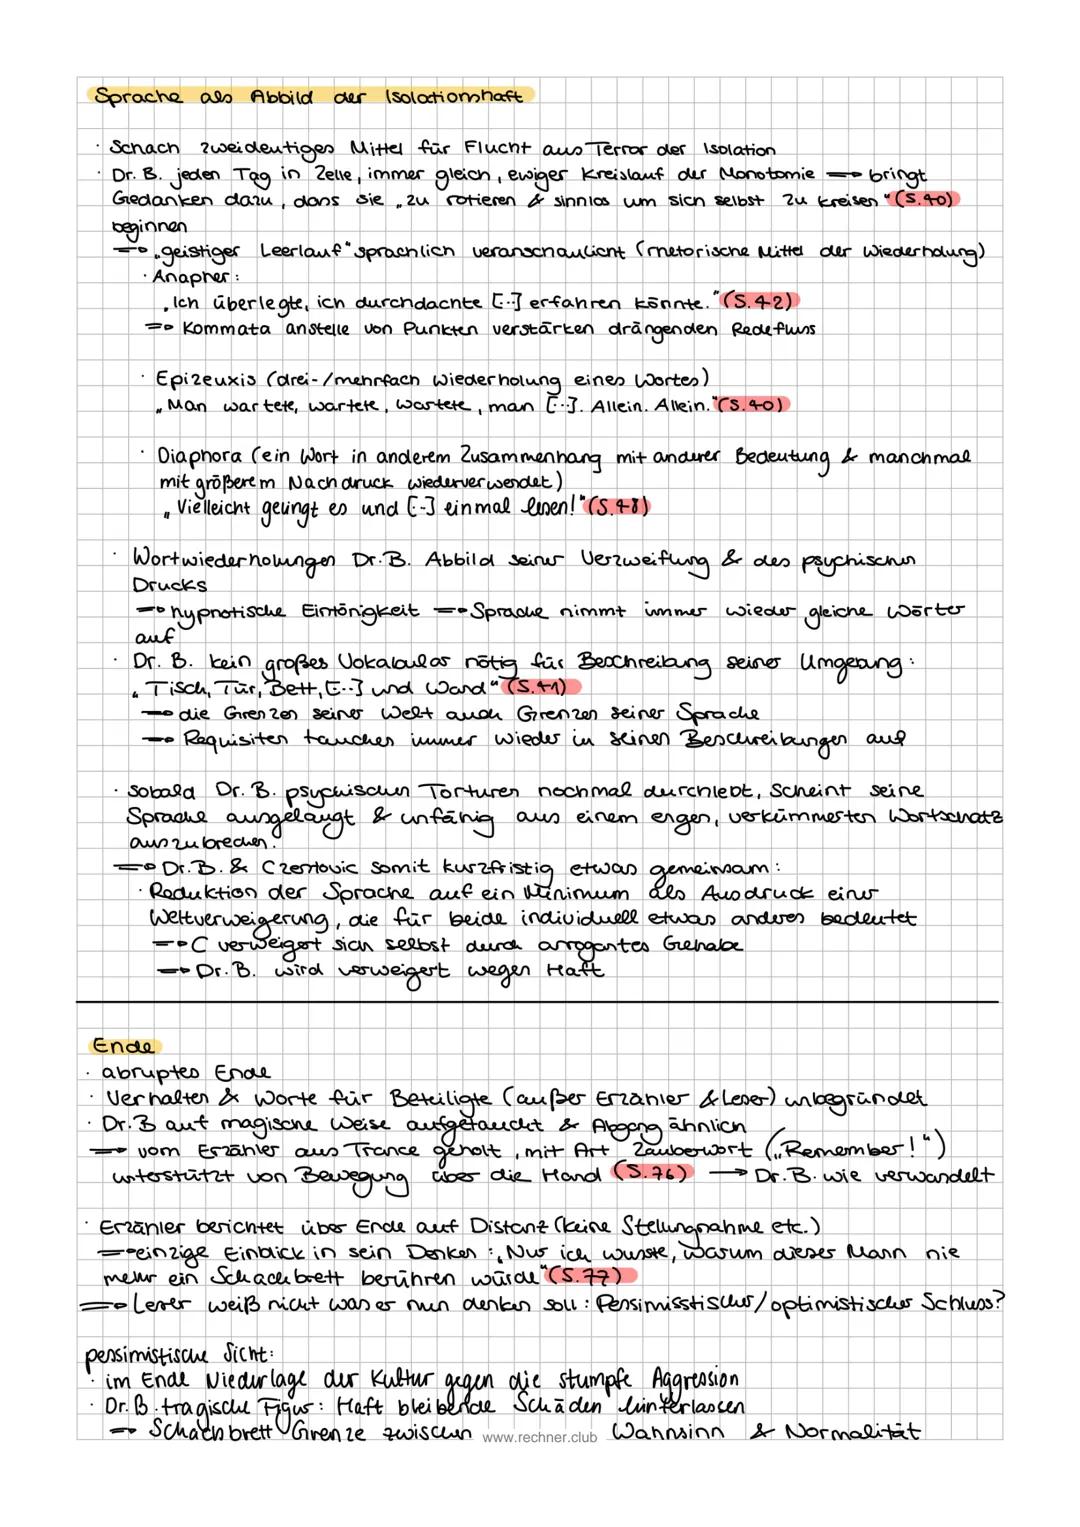 Sprache als Abbild der Isolationshaft
· Schach zweideutiges Mittel für Flucht aus Terror der Isolation
· Dr. B. jeden Tag in Zelle, immer gleich, ewiger Kreislauf der Monotomie => bringt
Gedanken dazu, dass sie „zu rotieren & sinnlos um sich selbst zu kreisen" (S.40)
beginnen
=> „geistiger Leerlauf" sprachlich veranschaulicht (rhetorische Mittel der Wiederholung)
· Anapher:
„Ich überlegte, ich durchdachte [..] erfahren könnte." (S.42)
=> Kommata anstelle von Punkten verstärken drängenden Redefluss
· Epizeuxis (drei-/mehrfach Wiederholung eines Wortes)
„Man wartete, wartete, wartete, man [..]. Allein. Allein." (S.40)
· Diaphora (ein Wort in anderem Zusammenhang mit anderer Bedeutung & manchmal
mit größerem Nachdruck wiederverwendet)
„Vielleicht gelingt es und [..] einmal lesen!" (S.48)
· Wortwiederholungen Dr.B. Abbild seiner Verzweiflung & des psychischen
Drucks
=> hypnotische Eintönigkeit => Sprache nimmt immer wieder gleiche Wörter
auf
· Dr. B. kein großes Vokabular nötig für Beschreibung seiner Umgebung:
„Tisch, Tür, Bett, [..] und Wand" (S.41)
=> die Grenzen seiner Welt auch Grenzen seiner Sprache
=> Requisiten tauchen immer wieder in seinen Beschreibungen auf
· sobald Dr. B. psychischen Torturen nochmal durchlebt, scheint seine
Sprache ausgelaugt & unfähig aus einem engen, verkümmerten Wortschatz
auszubrechen.
=> Dr.B. & Czentovic somit kurzfristig etwas gemeinsam:
· Reduktion der Sprache auf ein Minimum als Ausdruck einer
Weltverweigerung, die für beide individuell etwas anderes bedeutet
=> C verweigert sich selbst durch arrogantes Gehabe
=> Dr. B. wird verweigert wegen Haft
Ende
· abruptes Ende
· Verhalten & Worte für Beteiligte (außer Erzähler & Leser) unbegründet
· Dr.B auf magische Weise aufgetaucht & Abgang ähnlich
=> vom Erzähler aus Trance geholt, mit Art Zauberwort („Remember!")
unterstützt von Bewegung über die Hand (S.76) → Dr.B. wie verwandelt
· Erzähler berichtet über Ende auf Distanz (keine Stellungnahme etc.)
=> einzige Einblick in sein Denken: „Nur ich wusste, warum dieser Mann nie
mehr ein Schachbrett berühren würde" (S.77)
=> Leser weiß nicht was er nun denken soll: Pessimisstischer/optimistischer Schluss?
pessimistische Sicht:
· im Ende Niederlage der Kultur gegen die stumpfe Aggression
· Dr.B. tragische Figur: Haft bleibende Schäden hinterlassen
=> Schachbrett Grenze zwischen Wahnsinn & Normalität
www.rechner.club